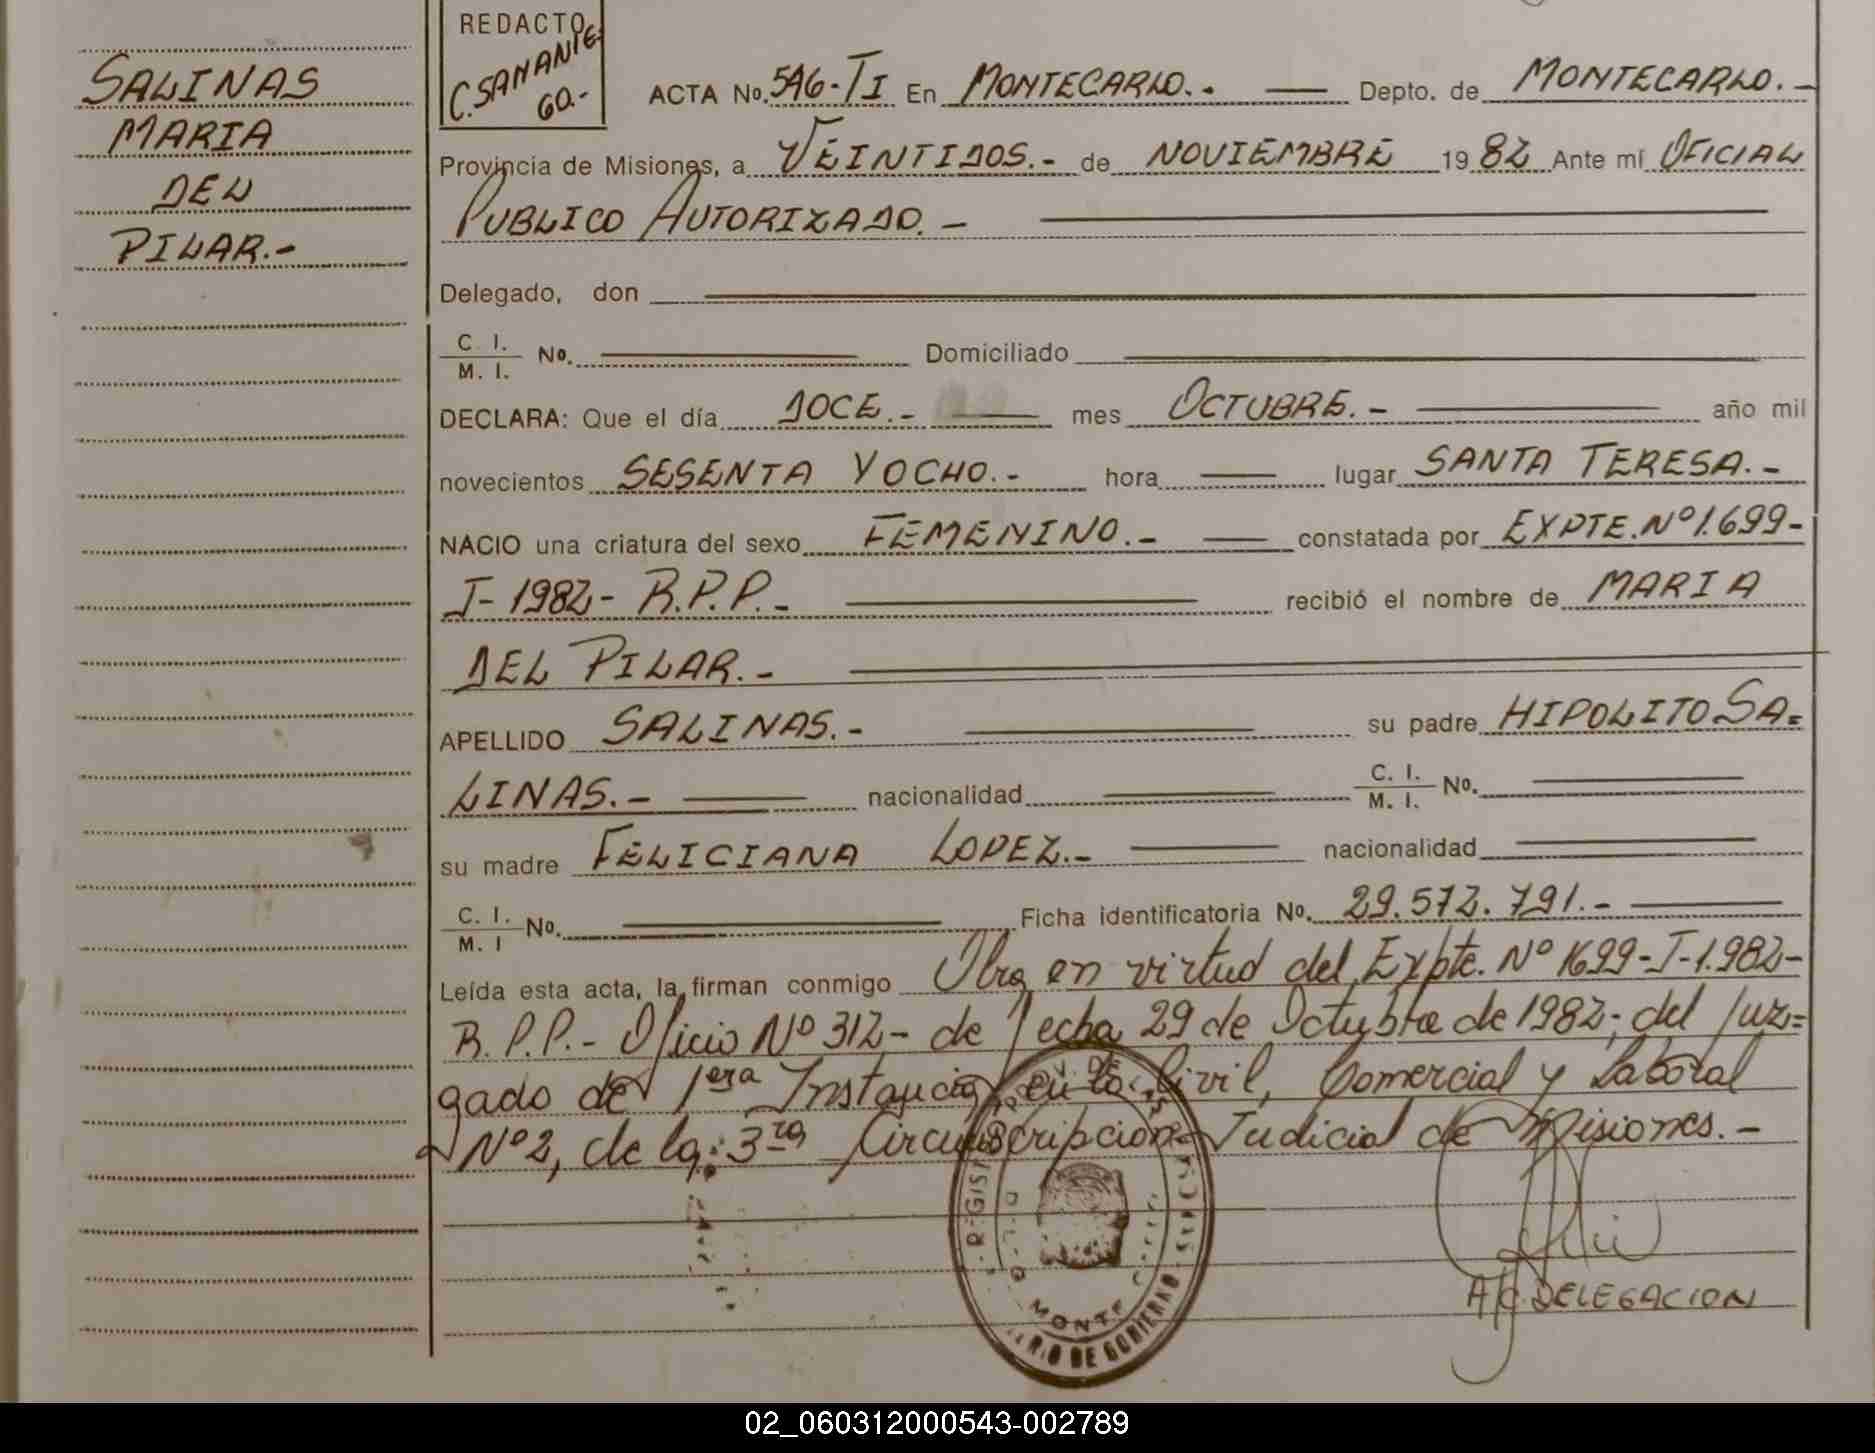 SALINAS
MARIA
DEL
PILAR.-
REDACTO
C. SANANIE.
60.-
ACTA No. 546-TI En MONTECARLO.- Depto. de MONTECARLO.-
Provincia de Misiones, a VEINTIDOS.- de NOVIEMBRE 1982 Ante mí OFICIAL
PUBLICO AUTORIZADO.-
Delegado, don
C. I. / M. I. No. Domiciliado
DECLARA: Que el día DOCE.- mes OCTUBRE.- año mil
novecientos SESENTA Y OCHO.- hora lugar SANTA TERESA.-
NACIO una criatura del sexo FEMENINO.- constatada por EXPTE. Nº 1.699-
J-1982- R.P.P.- recibió el nombre de MARIA
DEL PILAR.-
APELLIDO SALINAS.- su padre HIPOLITO SA=
LINAS.- nacionalidad C. I. / M. I. No.
su madre FELICIANA LOPEZ.- nacionalidad
C. I. / M. I No. Ficha identificatoria No. 29.572.791.-
Leída esta acta, la firman conmigo Obra en virtud del Expte. Nº 1699-J-1.982-
R.P.P.- Oficio Nº 312- de fecha 29 de Octubre de 1982- del Juz=
gado de 1era Instancia en lo Civil, Comercial y Laboral
Nº 2, de la 3ra Circunscripción Judicial de Misiones.-
MONTE
RIO DE GOBIERNO
A/C. DELEGACION
02_060312000543-002789